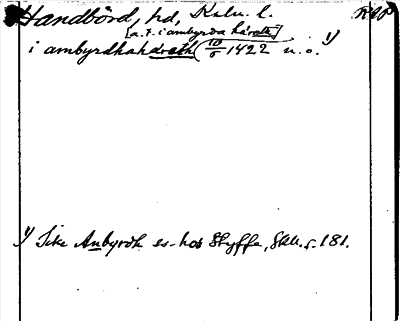 Handbörd, hd, Kalm. l.
[a. f. i ambyrda härath]
i ambyrdhahårath (10/6 1422 u. o. 1)
1) Icke Anbyrdh es- hos Styffe, SkU. s. 181.